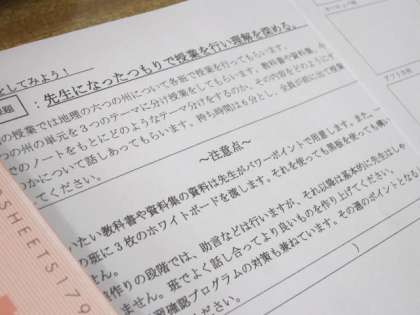 としてみよう！
題：先生になったつもりで授業を行い理解を深める。
の授業では地理の六つの州について各班で授業を行ってもらいます。
つの州の単元を３つのテーマに分け授業をしてもらいます。教科書や資料集、今
でのノートをもとにどのようなテーマ分けをするのか、その内容をどのようにす
かについて話しあってもらいます。持ち時間は６分とし、全員が前に出て授業
てください。
～注意点～
いたい教科書や資料集の資料は先生がパワーポイントで用意します。また、
班に３枚のホワイトボードを渡します。それを使っても黒板を使っても構い
せん。
作りの段階では、助言などは行いますが、それ以降は基本的に先生はしゃ
ません。班でよく話し合ってより良いものを作り上げてください。
習確認プログラムの対策も兼ねています。その週のポイントとなる
ださい。
）
SHEETS179